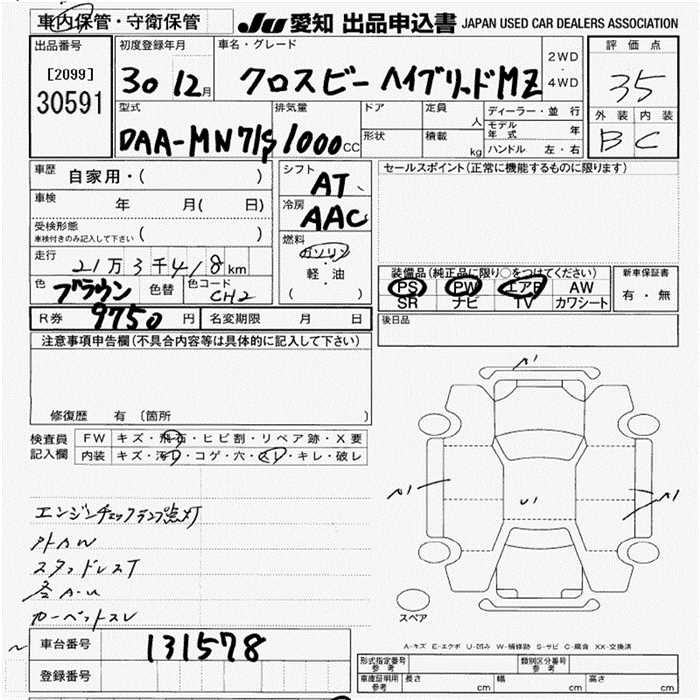 車内保管・守衛保管
JU 愛知 出品申込書 JAPAN USED CAR DEALERS ASSOCIATION
出品番号
[2099]
30591
初度登録年月
30 12月
車名・グレード
クロスビー ハイブリッドMZ
2WD
・
4WD
評価点
35
外装 内装
B C
型式
DAA-MN71S
排気量
1000cc
ドア
形状
定員
人
積載
kg
ディーラー・並行
モデル年式 年
ハンドル 左・右
車歴 自家用・( )
車検 年 月( 日)
受検形態
車検付きのみ記入して下さい ( )
走行 21万3千418km
色 ブラウン 色替 色コード CH2
R券 9750円 名変期限 月 日
シフト
AT
冷房
AAC
燃料
ガソリン
・
軽・油
( )
セールスポイント(正常に機能するものに限ります)
装備品(純正品に限り○をつけてください)
PS PW エアB AW
SR ナビ TV カワシート
新車保証書
有・無
後日品
注意事項申告欄(不具合内容等は具体的に記入して下さい)
修復歴 有 〔箇所 〕
検査員記入欄
FW キズ・飛石・ヒビ割・リペア跡・X要
内装 キズ・汚れ・コゲ・穴・スレ・キレ・破レ
エンジンチェックランプ点灯
社外AW
スタッドレスT
各A-U
カーペットスレ
A1
A1
U1
A1
スペア
A-キズ E-エクボ U-凹み W-補修跡 S-サビ C-腐食 XX-交換済
車台番号 131578
登録番号
形式指定番号 参考
類別区分番号 参考
車庫証明用 参考
長さ cm 幅 cm 高さ cm